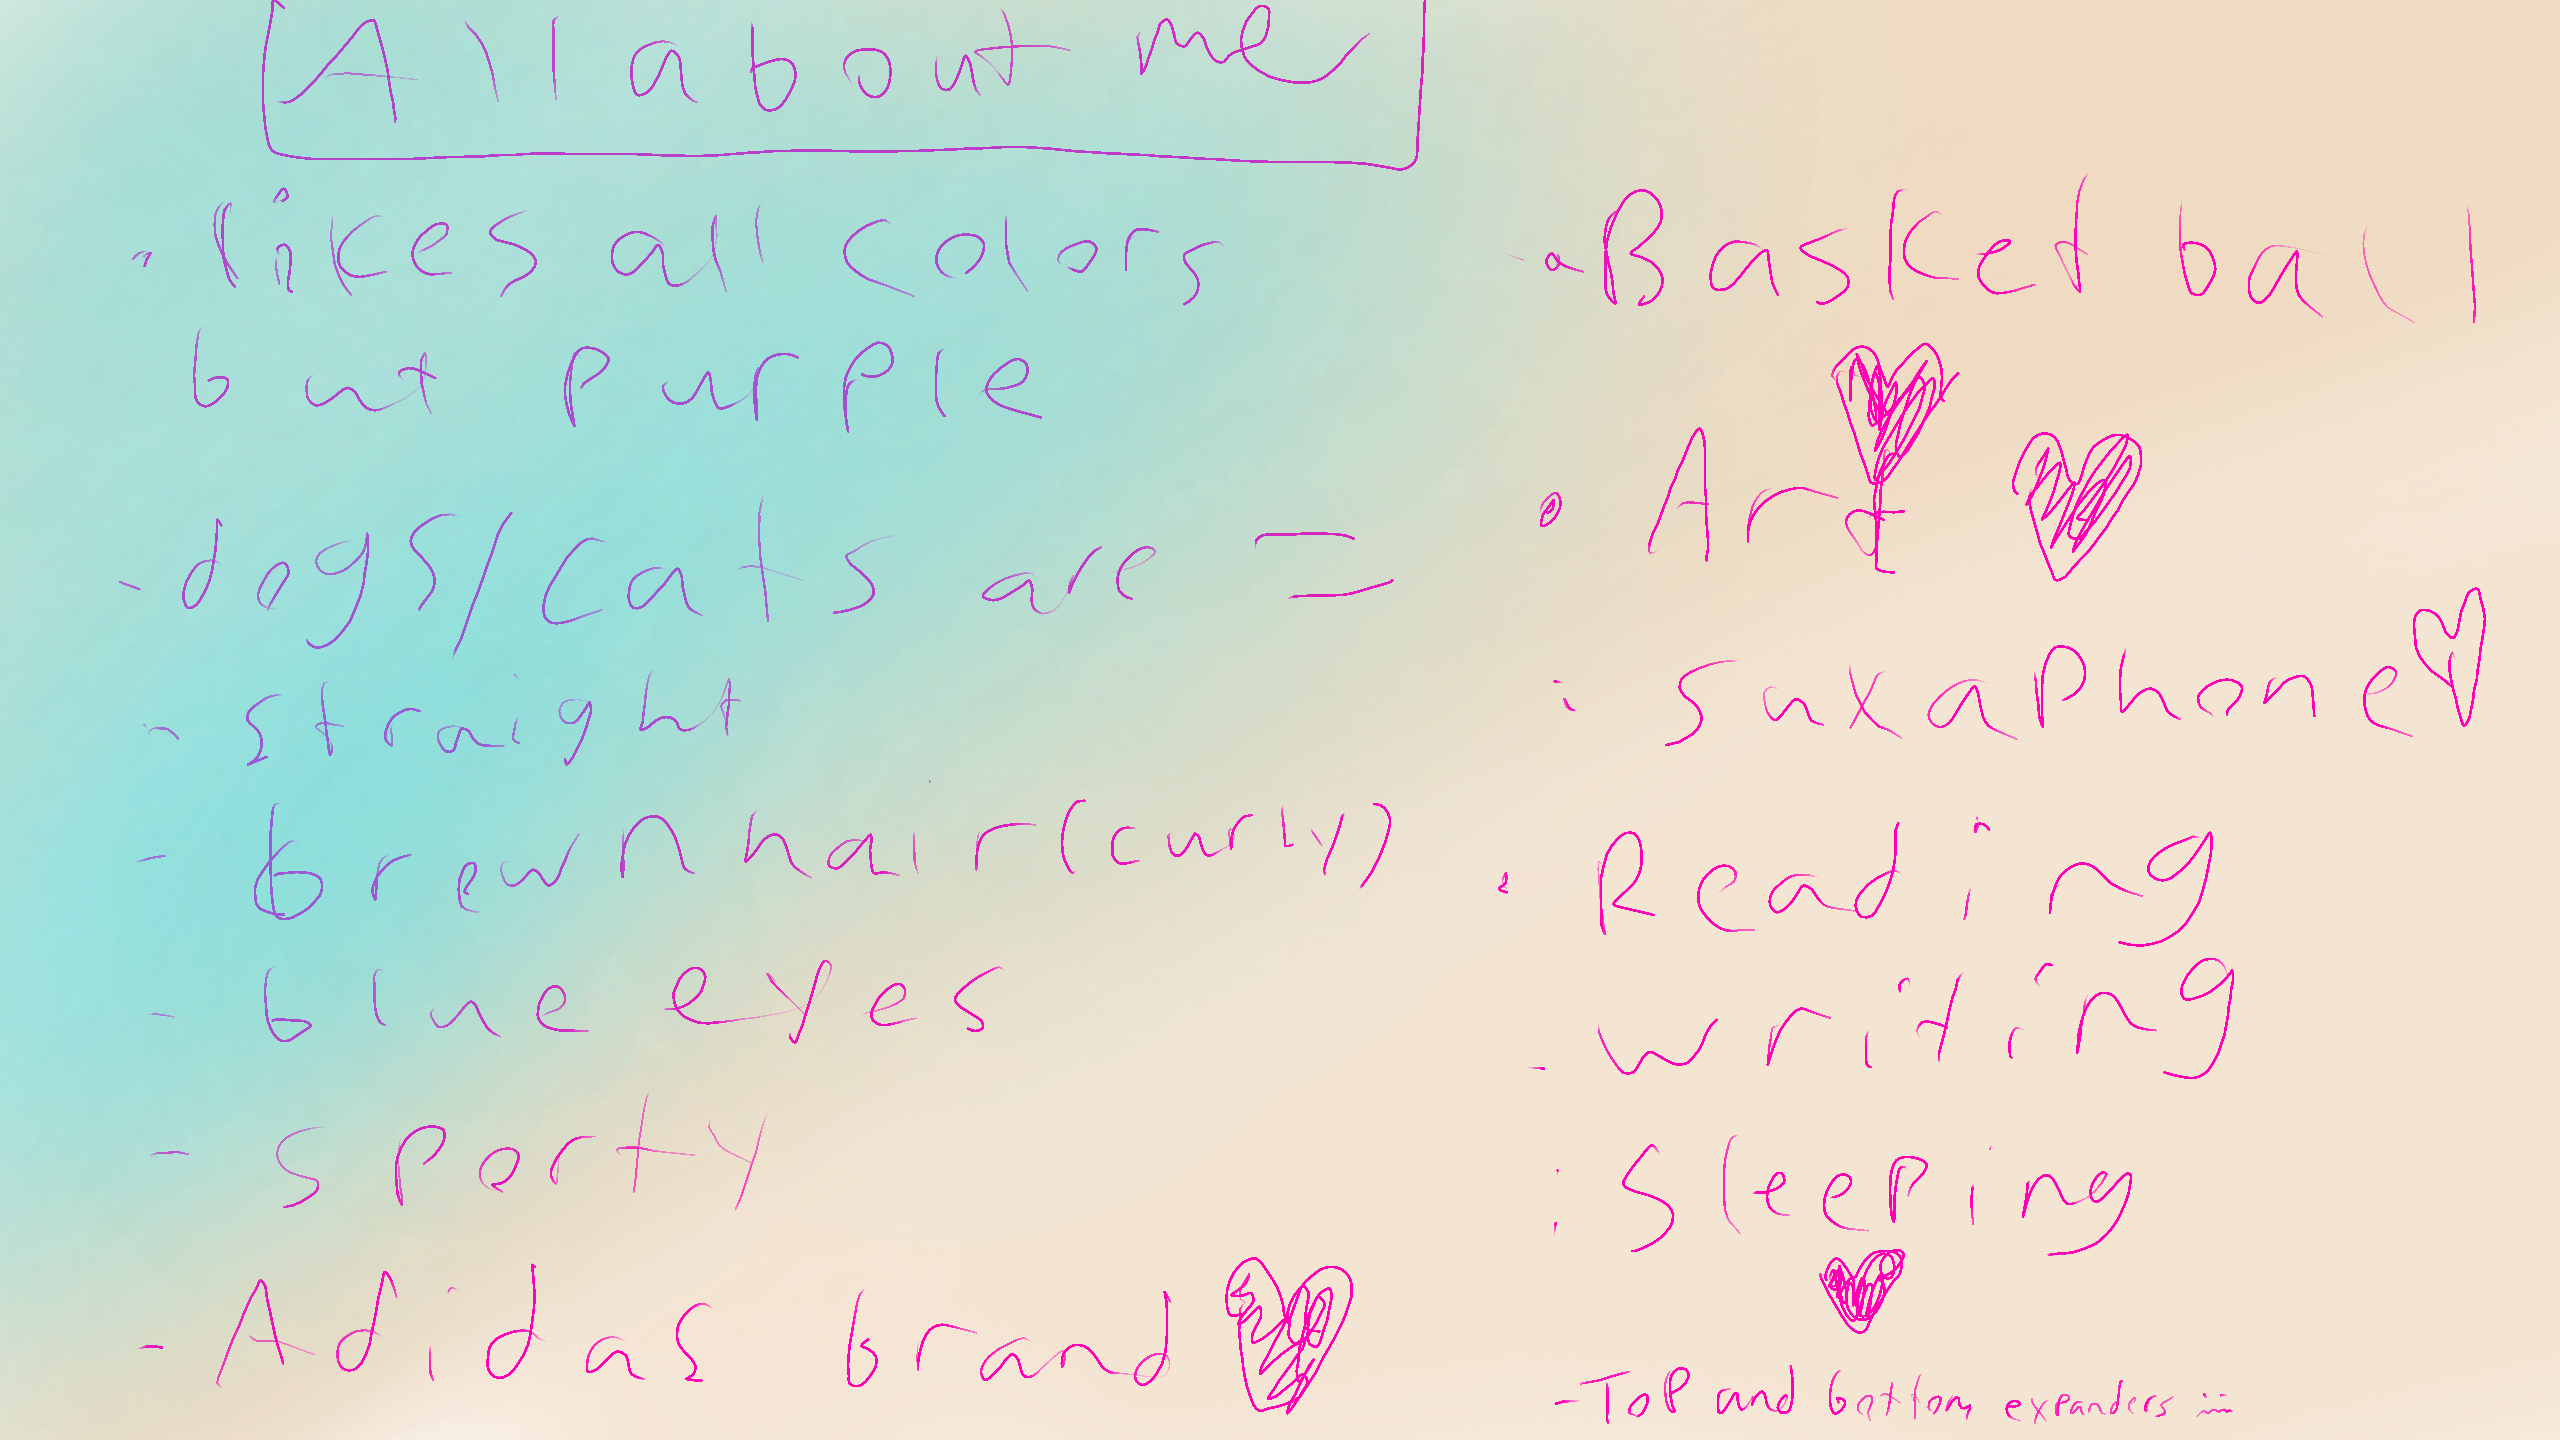 All about me
likes all colors
but purple
-dogs/cats are =
- straight
- brown hair (curly)
- blue eyes
- sporty
- Adidas brand
- Basketball
• Art
: saxaphone
• Reading
- writing
: Sleeping
- Top and bottom expanders